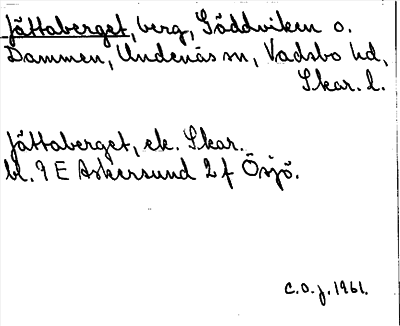 Jättaberget, berg, Gäddviken o.
Dammen, Undenäs sn, Vadsbo hd,
Skar. l.
Jättaberget, ek. Skar.
bl. 9 E Askersund 2 f Ösjö.
C.O.J. 1961.